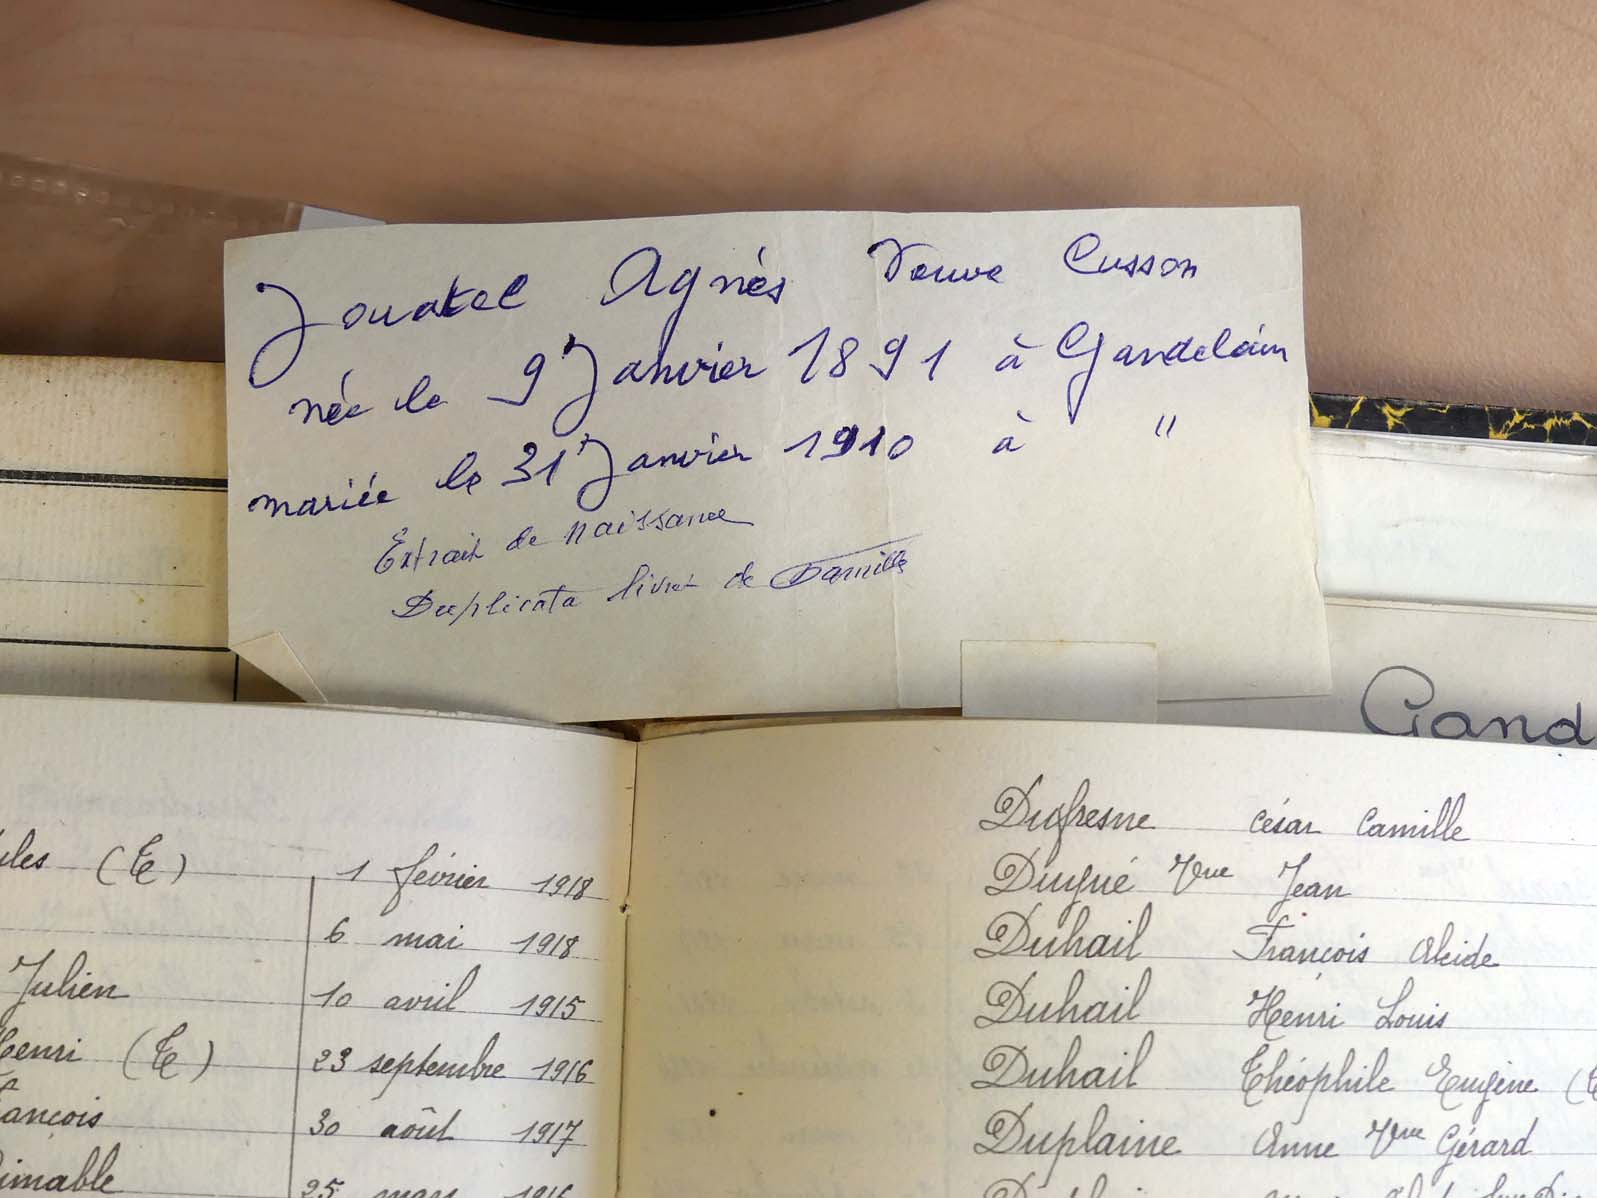 Jouatel Agnès Veuve Cusson
née le 9 Janvier 1891 à Gandelain
mariée le 31 Janvier 1910 à "
Extrait de naissance
Duplicata livret de Famille
Gand
ules (E) 1 février 1918
6 mai 1918
Julien 10 avril 1915
Henri (E) 23 septembre 1916
rançois 30 août 1917
imable 25 1916
Dufresne César Camille
Dugué Vve Jean
Duhail François Alcide
Duhail Henri Louis
Duhail Théophile Eugène (E
Duplaine Anne Vve Gérard